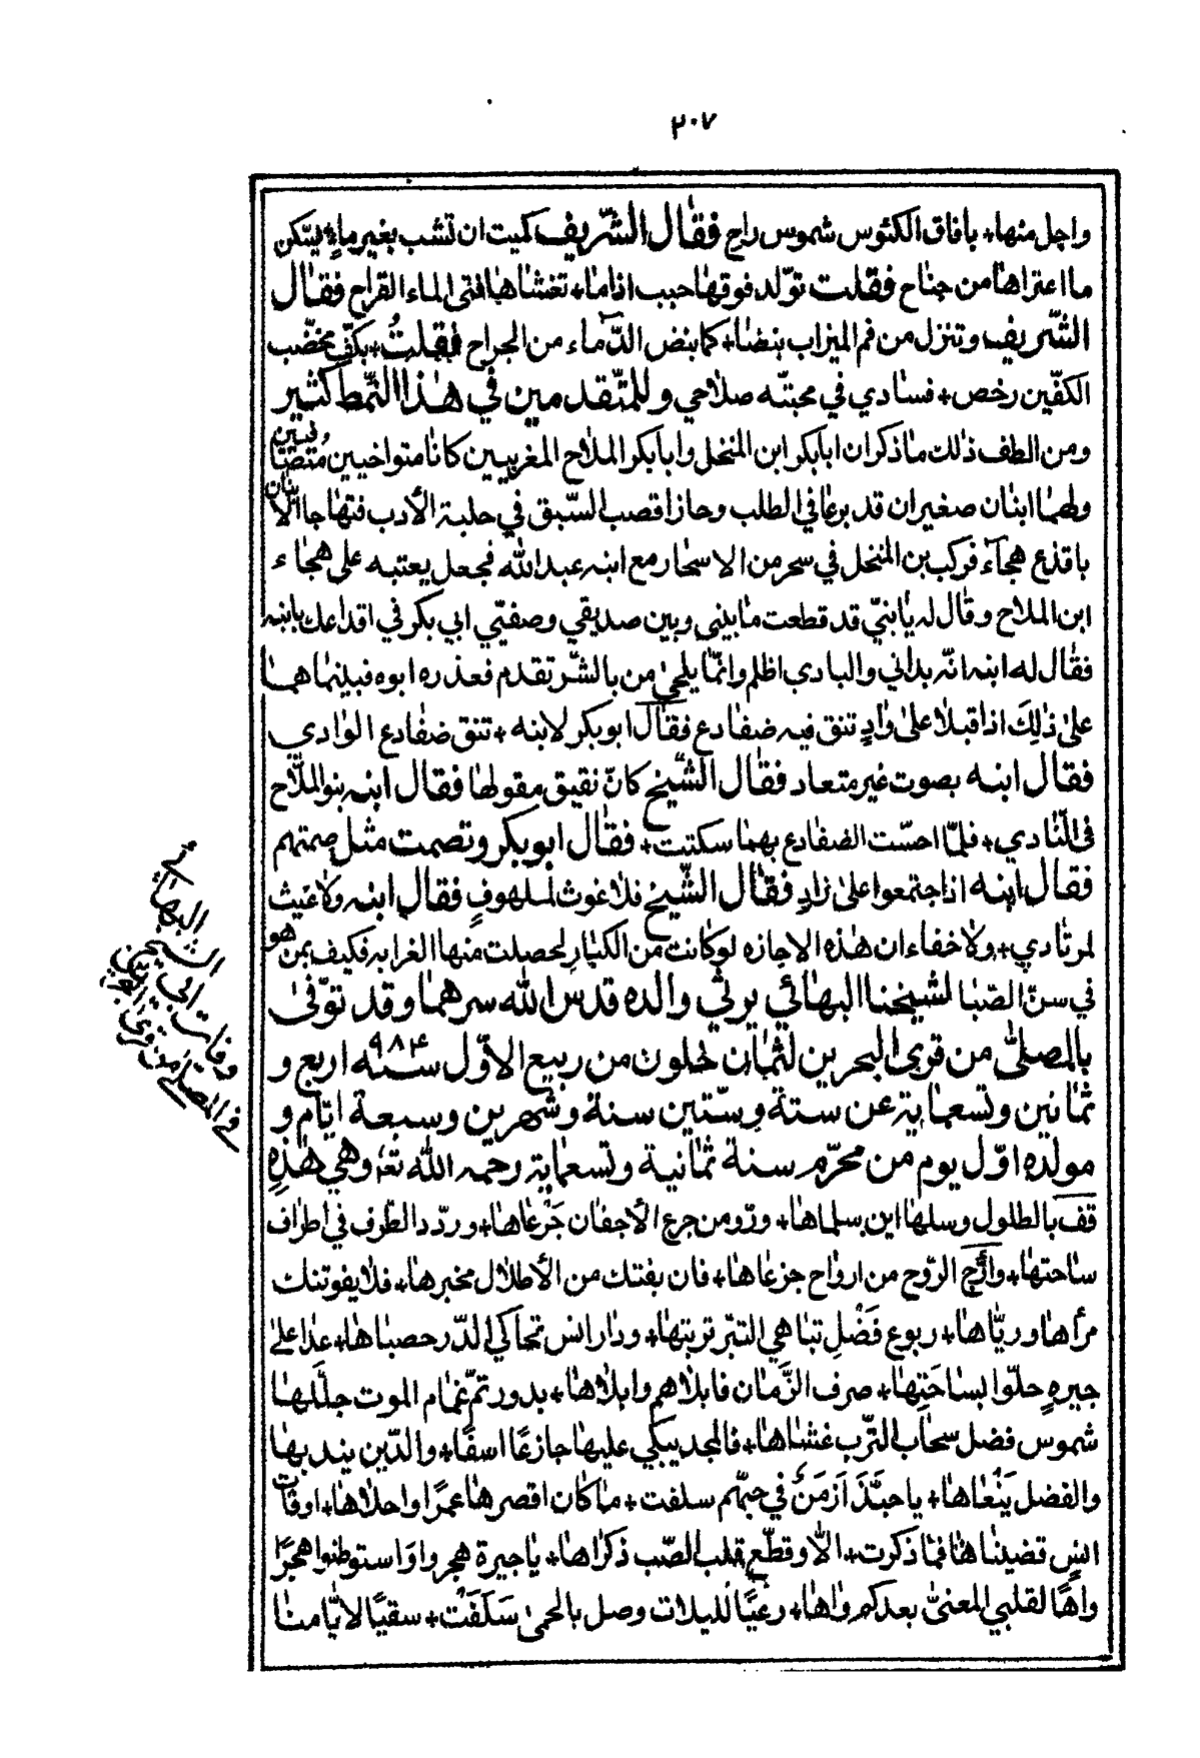 ٢٠٧
واجل منها + بافاق الكئوس شموس راح فقال الشريف كميت ان تشب بغير ماء + يتكن
ما اعتراها من جناح فقلت تولّد فوقها حبب اذا ما + تغشاها فتى الماء القراح فقال
الشريف وتنزل من فم الميزاب بنضا + كما بنض الدّماء من الجراح فقلتُ + بكفّ مخضّب
الكفّين رخص + فسادي في محبتّه صلاحي وللمتّقدمين في هذا النّمط كثير
ومن الطف ذلك ما ذكر ان ابابكر ابن المنخل وابابكر الملاح المغربيين كانا متواخيين متصافيين
ولهما ابنان صغيران قد برعا في الطلب وحازا قصب السّبق في حلبة الأدب فتهاجا الابنان
باقذع هجآء فركب بن المنخل في سحر من الاسحار مع ابنه عبد الله فجعل يعتبه على هجاء
ابن الملاح وقال له يا بنيّ قد قطعت ما بيني وبين صديقي وصفيّي ابي بكر في اقذاعك بابنه
فقال له ابنه انّه بداني والبادي اظلم وانّما يلحى من بالشّر تقدم فعذره ابوه فبينما هما
على ذلك اذا قبلا على وادٍ تنق فيه ضفادع فقال ابو بكر لابنه + تنق ضفادع الوادي
فقال ابنه بصوت غير متعاد فقال الشيخ كانّ نقيق مقولها فقال ابنه بنو الملّاح
في النّادي + فلمّا احسّت الضفادع بهما سكتت + فقال ابو بكر وتصمت مثل صمتهم
فقال ابنه اذا جتمعوا على زادٍ فقال الشّيخ فلا غوث لملهوفٍ فقال ابنه ولا غيث
لمرتادي + ولا خفاء ان هذه الاجازه لو كانت من الكبار لحصلت منها الغرابه فكيف بمن هو
في سنّ الصّبا لشيخنا البهائي يرثي والده قدس الله سرهما وقد توّفى
بالمصلّى من قرى البحرين لثمان خلون من ربيع الاوّل سنه ٩٨٤ اربع و
ثمانين وتسعماية عن ستة وستّين سنة وشهرين وسبعة ايّام و
مولده اوّل يوم من محرّم سنة ثمانية وتسعماية رحمه الله تعا وهي هذه
قف بالطلول وسلها اين سلماها + وروّ من جرع الأجفان جَرْعاها + وردّد الطّرف في اطراف
ساحتها + وارّج الرّوح من ارواح جزعاها + فان يفتك من الأطلال مخبرها + فلا يفوتنك
مرأها وريّاها + ربوع فَضْلٍ تباهي التبّر تربتها + ودار انس تحاكي الدّر حصباها + عدا على
جيرهٍ حلّوا بساحَتِها + صرف الزّمان فابلاهم وابلاها + بدور تمّ غمام الموت جللّها
شموس فضل سحاب التّرب غشاها + فالمجد يبكي عليها جازعًا اسفًا + والدّين يندبها
والفضل يَنْعاها + يا حبَّذَ اَزمَنٌ في حبّهم سلفت + ما كان اقصرها عمرًا واحلاها + اوقات
انسٍ قضيناها فما ذكرت + الّا وقطّع قلب الصّب ذكراها + يا جيرة هجروا واستوطنوا هجرًا
واهًا لقلبي المعنىّ بعدكم واها + رعيًا لليلات وصل بالحمى سَلَفَتْ + سقيًا لايّامنا
وفات ابي الشيخ البهائي
في المصلى من قرى البحرين